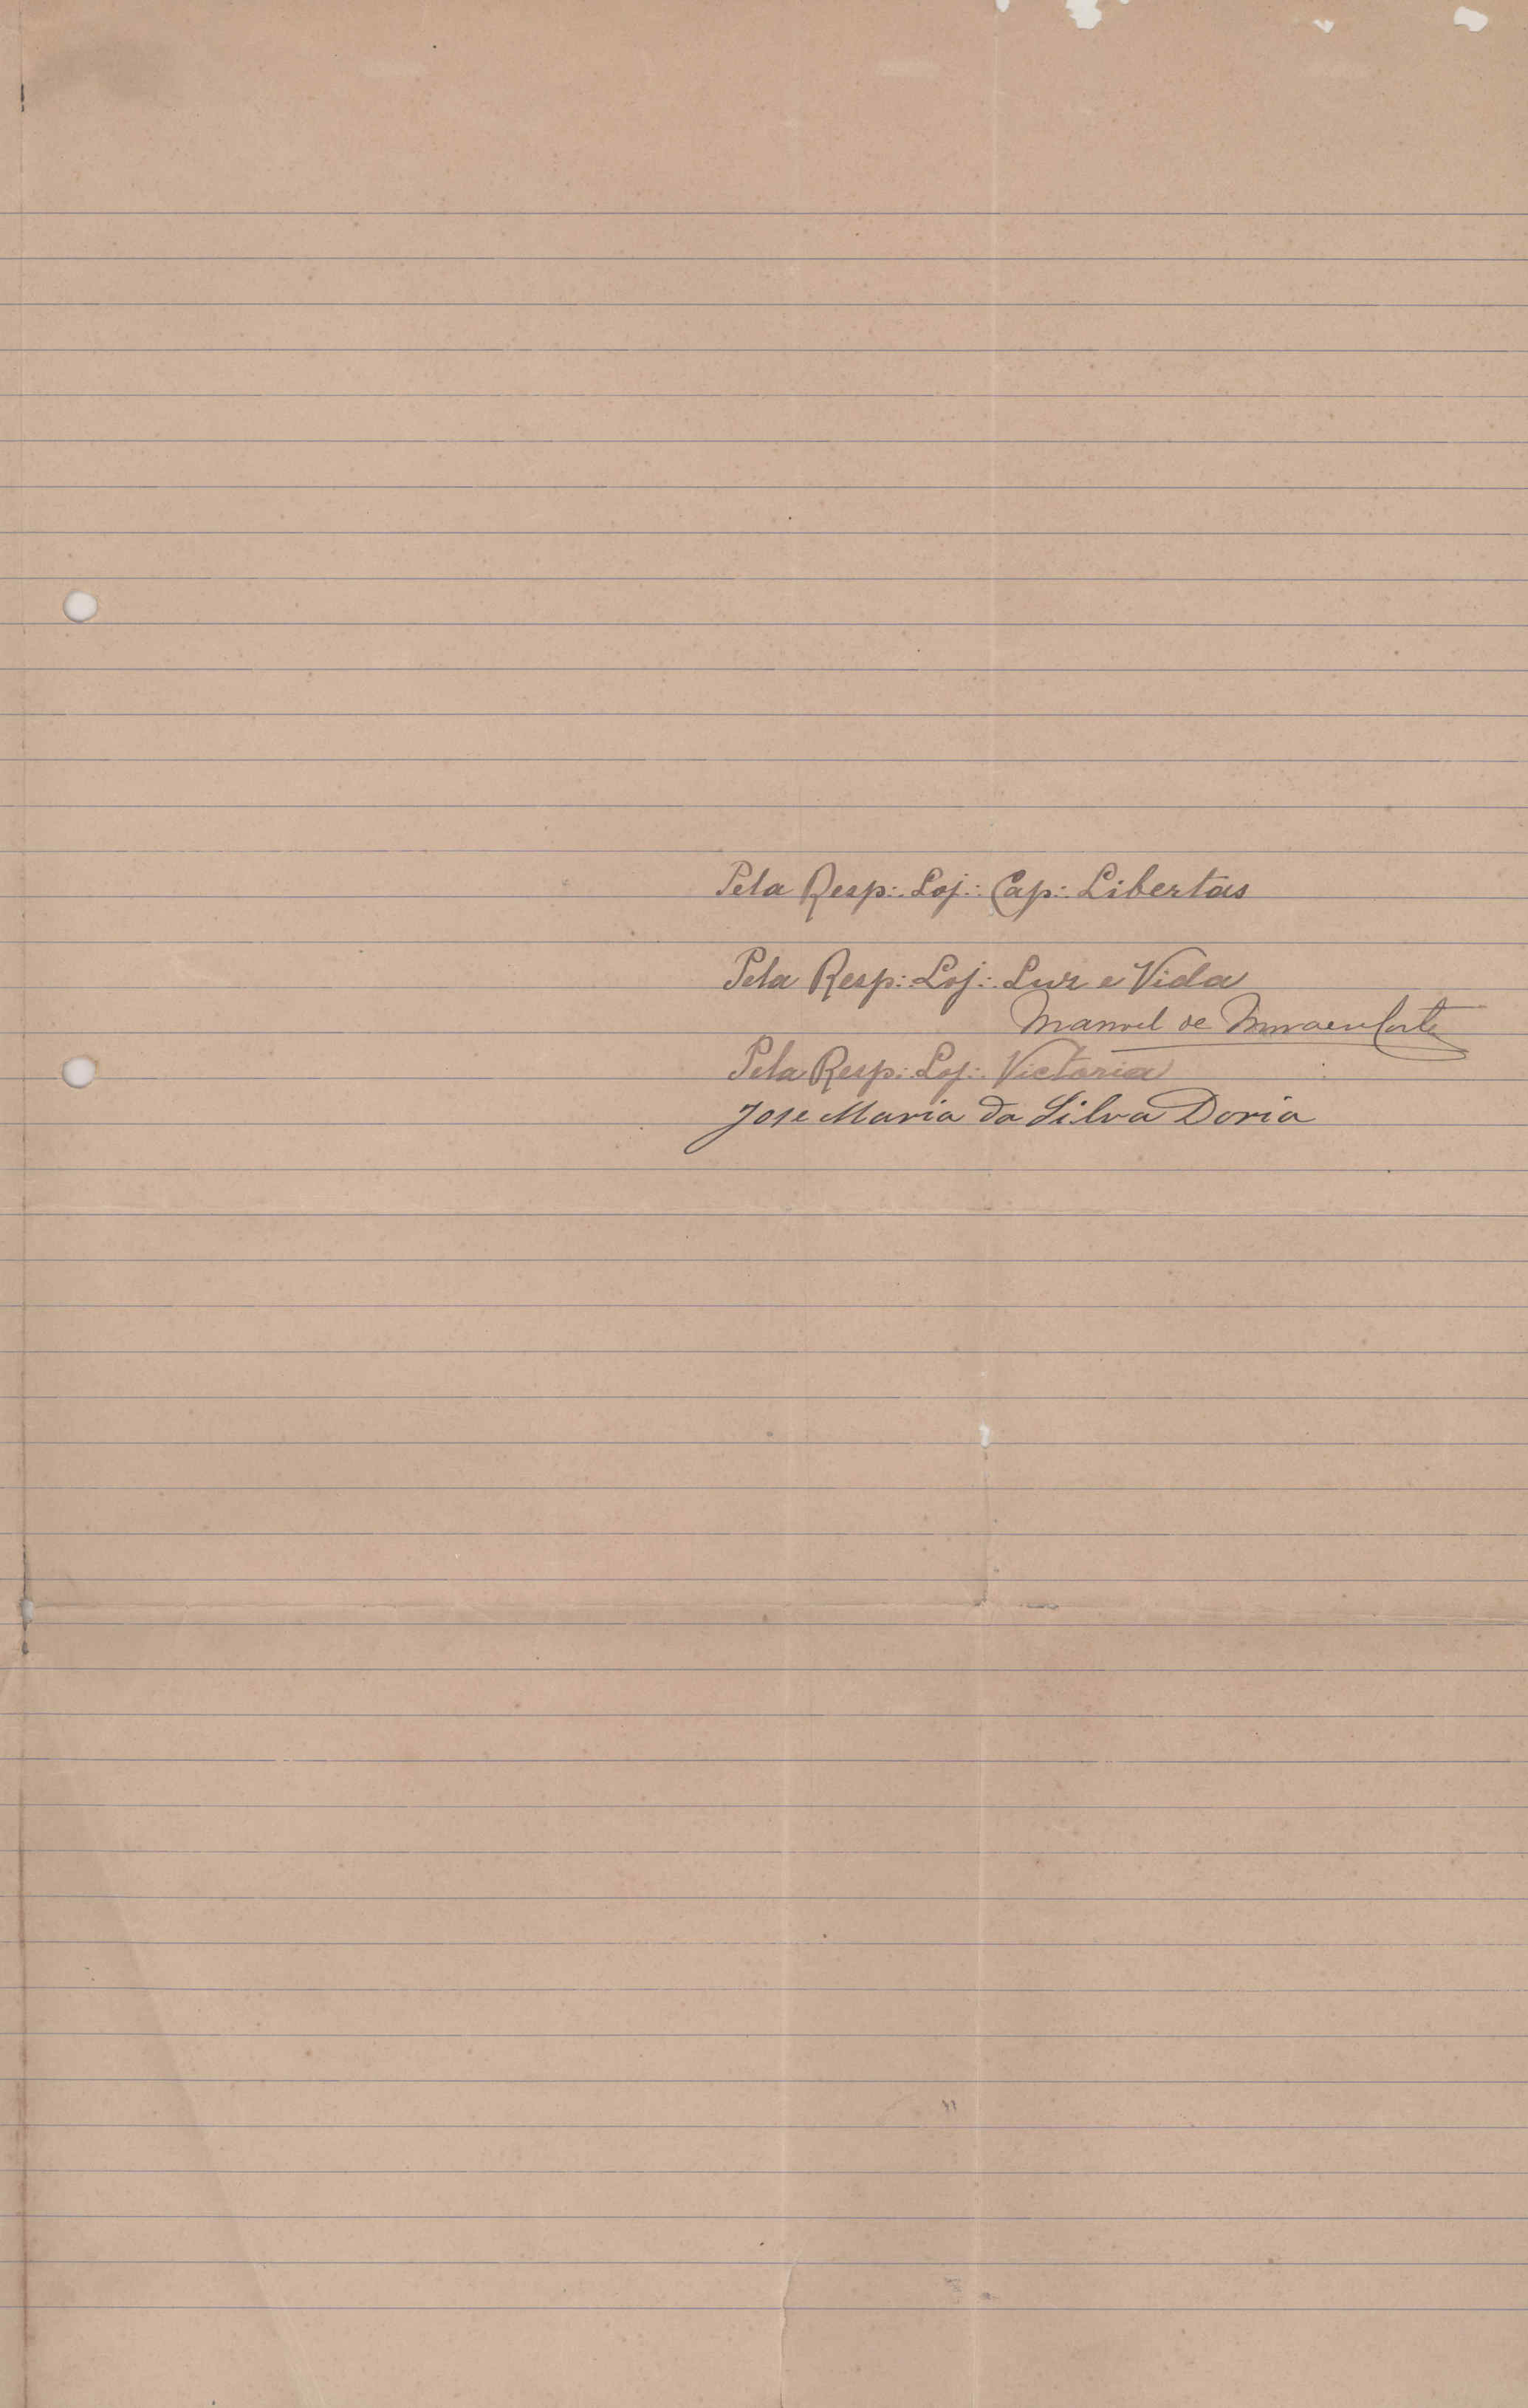 Pela Resp∴ Loj∴ Cap∴ Libertas
Pela Resp∴ Loj∴ Luz e Vida
Manoel de
Pela Resp∴ Loj∴ Victoria
Jose Maria da Silva Doria